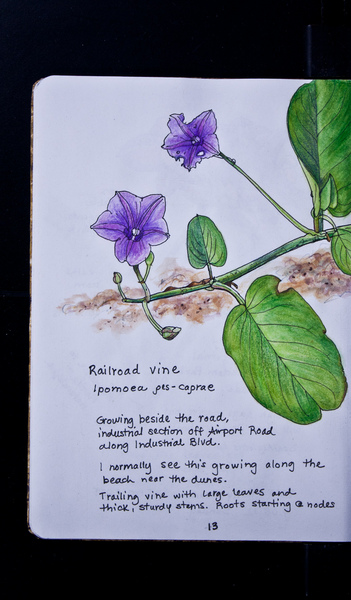 Railroad vine
Ipomoea pes-caprae
Growing beside the road,
industrial section off Airport Road
along Industrial Blvd.
I normally see this growing along the
beach near the dunes.
Trailing vine with large leaves and
thick, sturdy stems. Roots starting @ nodes
13